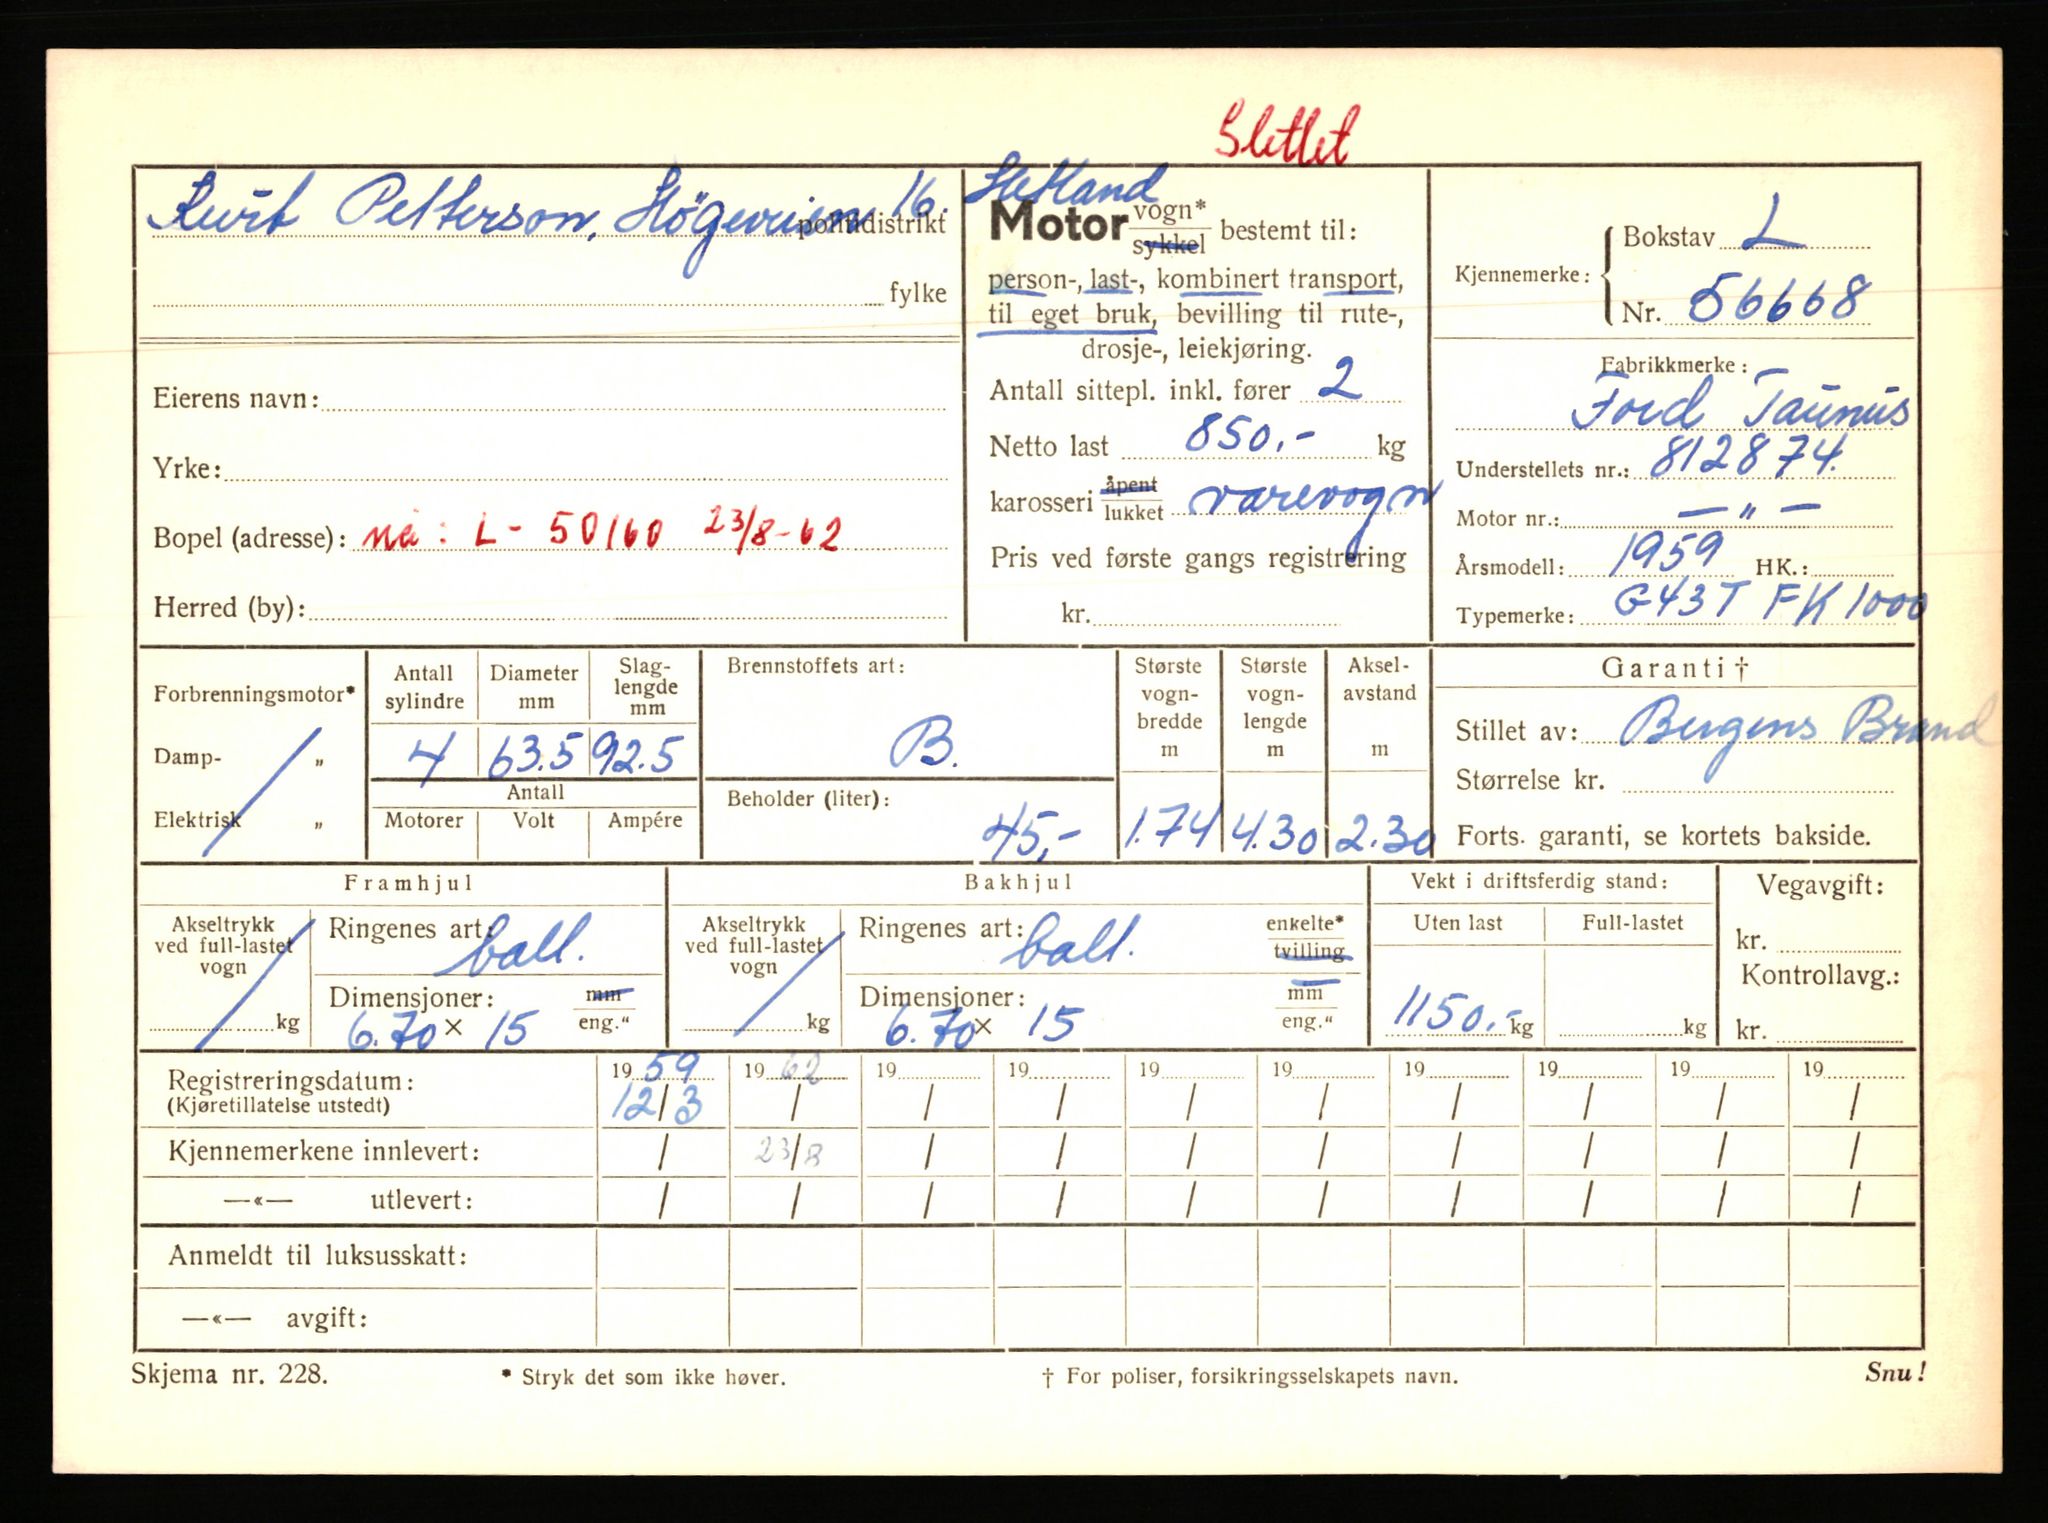 Slettet
Kurt Petterson, Högeveien 16. Hetland
politidistrikt
fylke
Eierens navn:
Yrke:
Bopel (adresse): nå: L - 50160 23/8-62
Herred (by):
Motor vogn* / sykkel bestemt til:
person-, last-, kombinert transport,
til eget bruk, bevilling til rute-,
drosje-, leiekjøring.
Antall sittepl. inkl. fører 2
Netto last 850,- kg
karosseri åpent / lukket varevogn
Pris ved første gangs registrering
kr.
Kjennemerke: Bokstav L
Nr. 56668
Fabrikkmerke:
Ford Taunus
Understellets nr.: 812874.
Motor nr.: — " —
Årsmodell: 1959 HK.:
Typemerke: G43T FK 1000
Forbrenningsmotor*
Damp- "
Elektrisk "
Antall sylindre Diameter mm Slag-lengde mm
4 63.5 92.5
Antall
Motorer Volt Ampére
Brennstoffets art:
B.
Beholder (liter):
45,-
Største vogn-bredde m Største vogn-lengde m Aksel-avstand m
1.74 4.30 2.30
Garanti †
Stillet av: Bergens Brand
Størrelse kr.
Forts. garanti, se kortets bakside.
Framhjul
Akseltrykk ved full-lastet vogn
kg
Ringenes art: ball.
Dimensjoner: mm / eng."
6.70 × 15
Bakhjul
Akseltrykk ved full-lastet vogn
kg
Ringenes art: ball. enkelte* / tvilling
Dimensjoner: mm / eng."
6.70 × 15
Vekt i driftsferdig stand:
Uten last Full-lastet
1150,- kg kg
Vegavgift:
kr.
Kontrollavg.:
kr.
Registreringsdatum: 19 59 19 62 19 19 19 19 19 19 19 19
(Kjøretillatelse utstedt) 12/3 / / / / / / / / /
Kjennemerkene innlevert: / 23/8 / / / / / / / /
—«— utlevert: / / / / / / / / / /
Anmeldt til luksusskatt:
—«— avgift:
Skjema nr. 228. * Stryk det som ikke høver. † For poliser, forsikringsselskapets navn. Snu!